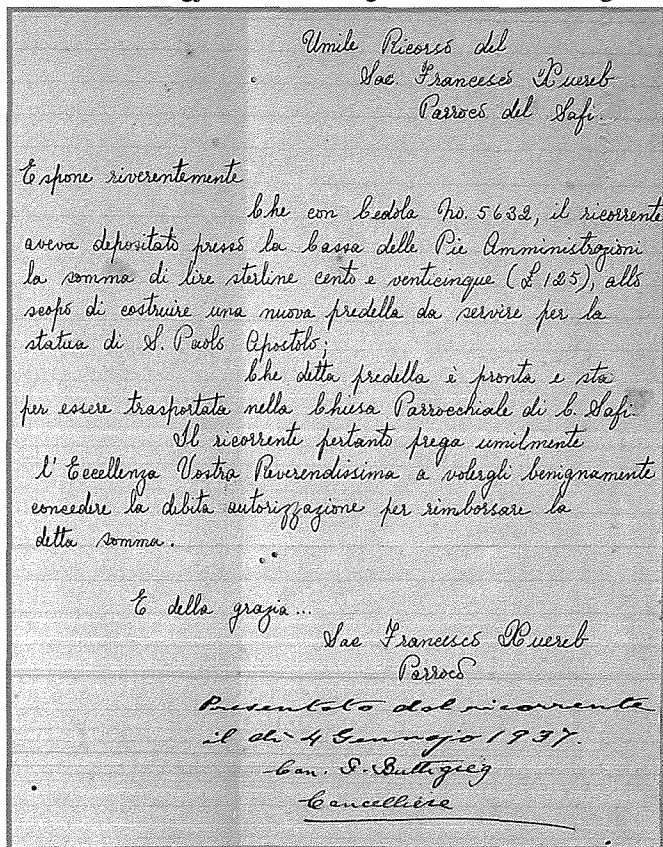 Umile Ricorso del
Sac. Francesco Xuereb
Parroco del Safi.
Espone riverentemente
Che con Cedola No. 5632, il ricorrente
aveva depositato presso la Cassa delle Pie Amministrazioni
la somma di lire sterline cento e venticinque (£125), allo
scopo di costruire una nuova predella da servire per la
statua di S. Paolo Apostolo;
Che detta predella è pronta e sta
per essere trasportata nella Chiesa Parrocchiale di C. Safi.
Il ricorrente pertanto prega umilmente
l'Eccellenza Vostra Reverendissima a volergli benignamente
concedere la debita autorizzazione per rimborsare la
detta somma.
E della grazia...
Sac Francesco Xuereb
Parroco
Presentato dal ricorrente
il dì 4 Gennajo 1937.
Can. G. Buttigieg
Cancelliere